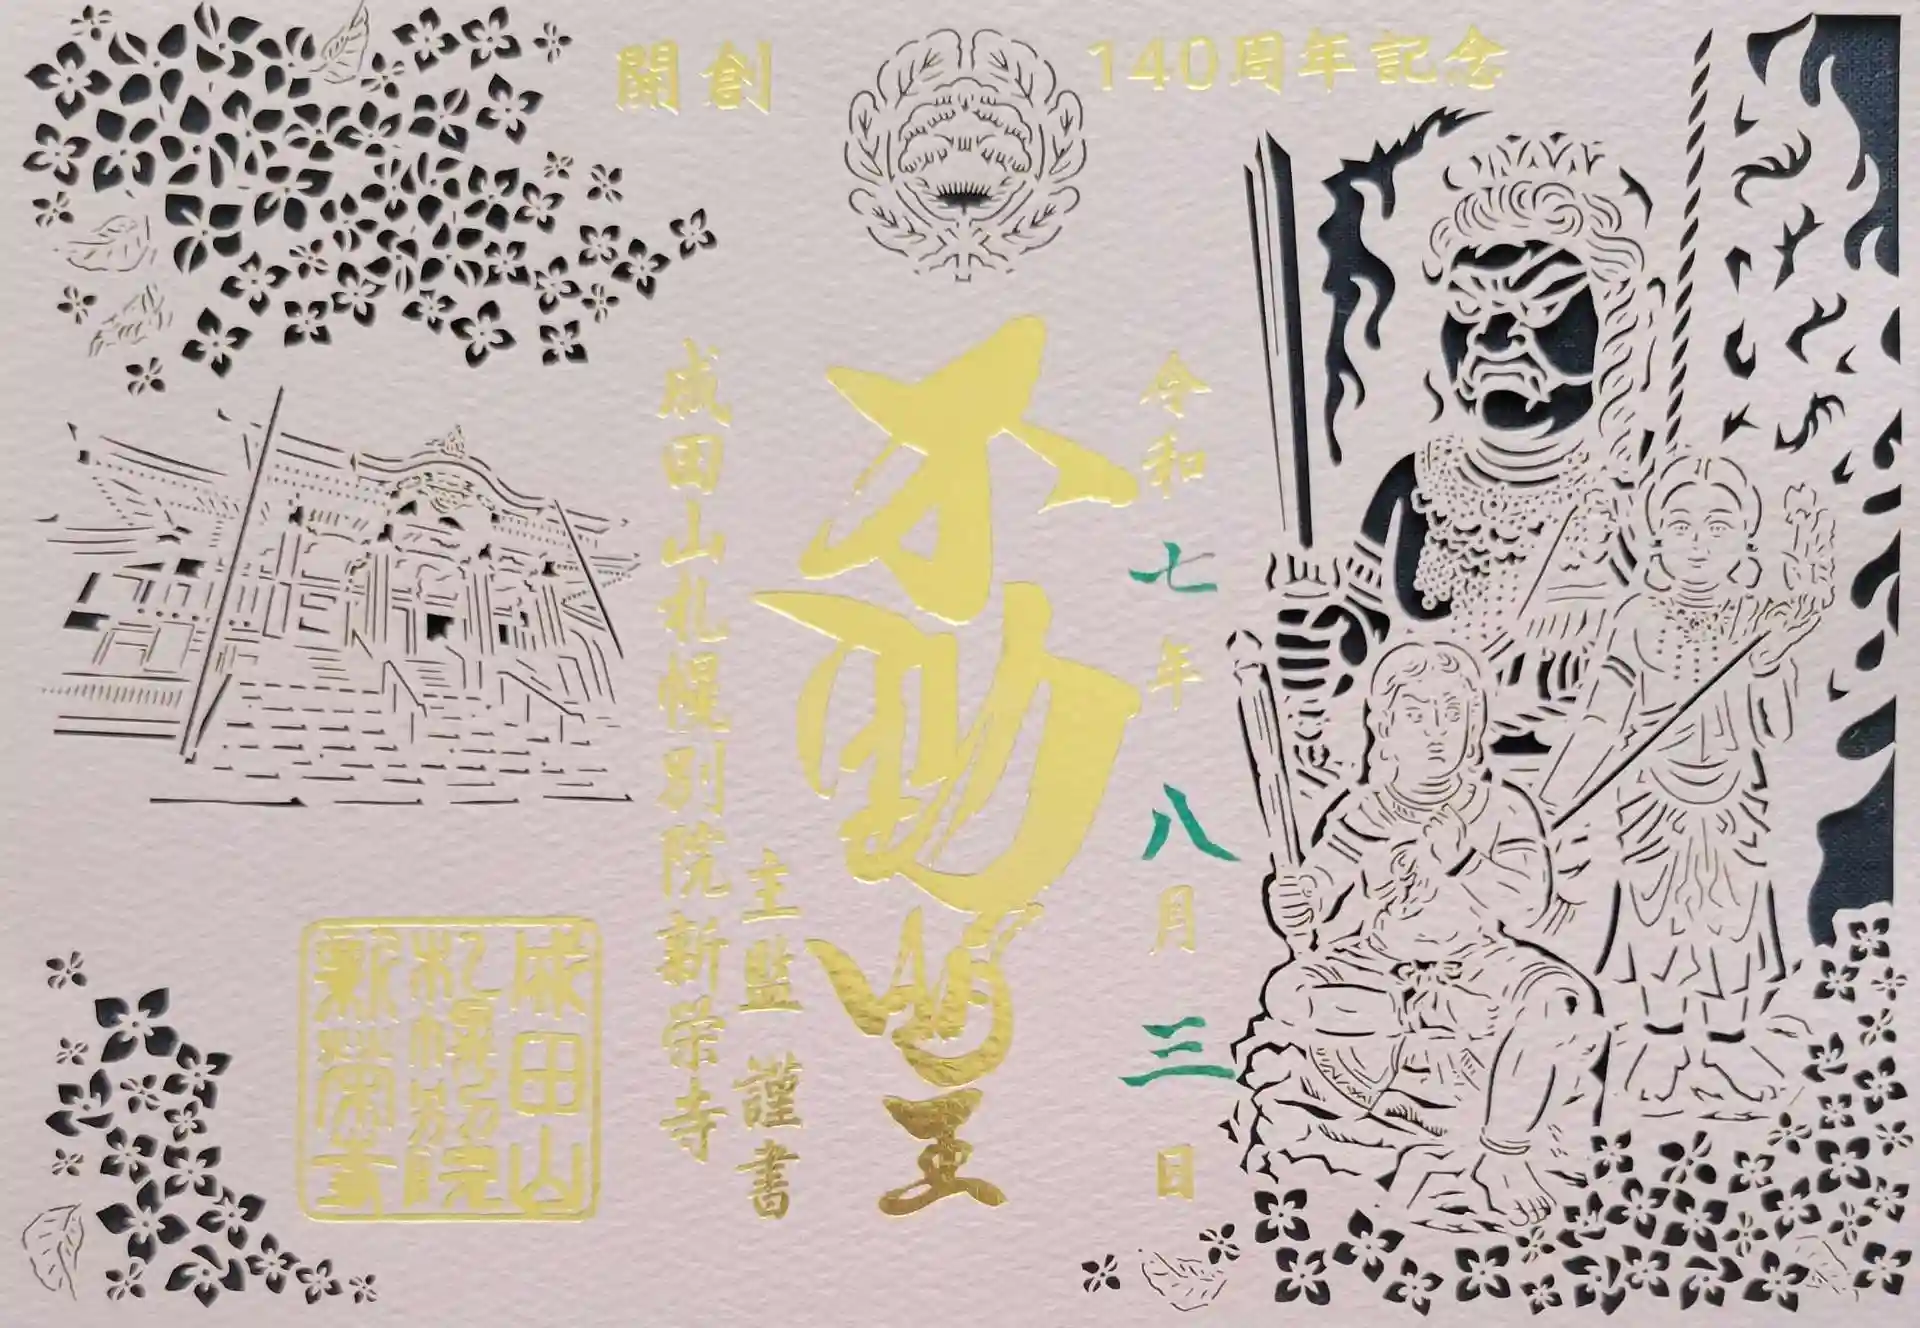 開創
140周年記念
令和七年八月三日
不動明王
主監 謹書
成田山札幌別院新栄寺
成田山
札幌別院
新栄寺